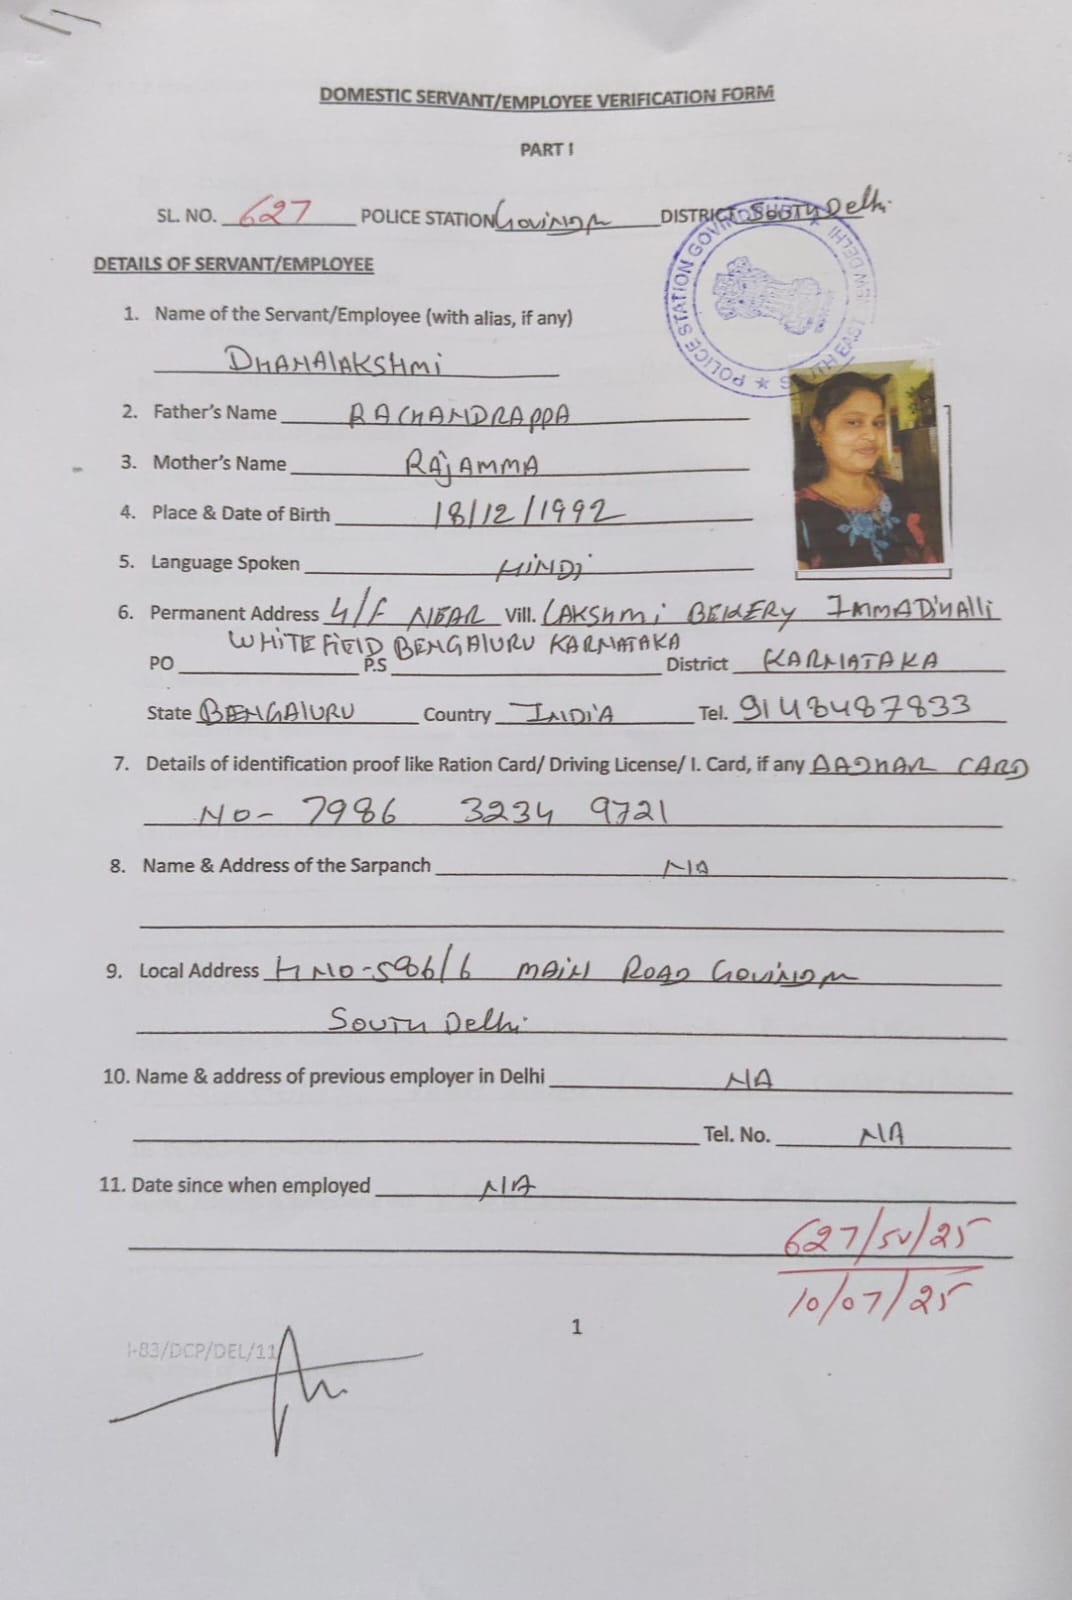 DOMESTIC SERVANT/EMPLOYEE VERIFICATION FORM
PART I
SL. NO. 627 POLICE STATION Govindpuri DISTRICT South Delhi
POLICE STATION GOVINDPURI ★ SOUTH EAST NEW DELHI ★
DETAILS OF SERVANT/EMPLOYEE
1. Name of the Servant/Employee (with alias, if any)
DHANALAKSHMI
2. Father's Name RACHANDRAPPA
3. Mother's Name RAJAMMA
4. Place & Date of Birth 18/12/1992
5. Language Spoken HINDI
6. Permanent Address 4/F NEAR Vill. LAKSHMI BEKERY IMMADIHALLI
WHITE FIELD BENGALURU KARNATAKA
PO P.S District KARNATAKA
State BENGALURU Country INDIA Tel. 9148487833
7. Details of identification proof like Ration Card/ Driving License/ I. Card, if any AADHAR CARD
NO- 7986 3234 9721
8. Name & Address of the Sarpanch NA
9. Local Address H NO-586/6 MAIN ROAD
SOUTH Delhi
10. Name & address of previous employer in Delhi NA
Tel. No. NA
11. Date since when employed NA
627/SV/25
10/07/25
1
I-83/DCP/DEL/11